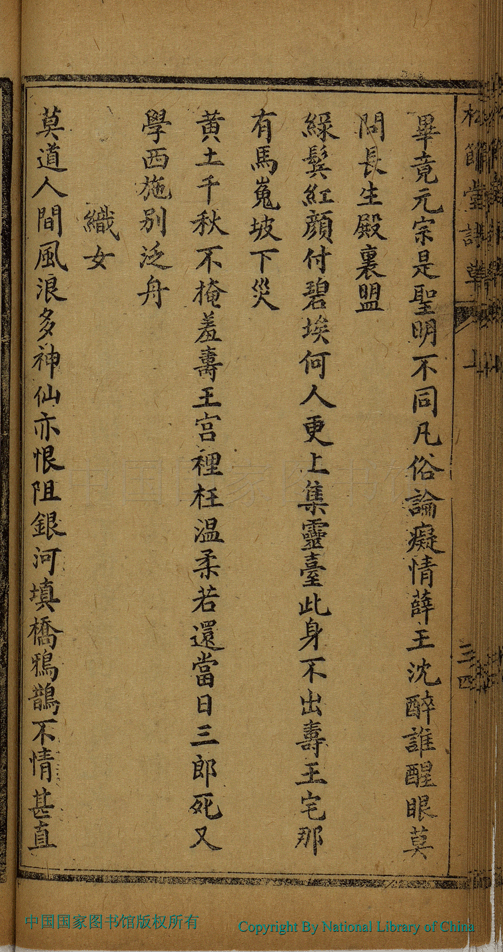 畢竟元宗是聖明不同凡俗論癡情薛王沈醉誰醒眼莫
問長生殿裏盟
綠鬂紅顔付碧埃何人更上集靈臺此身不出壽王宅那
有馬嵬坡下災
黄土千秋不掩羞壽王宫裡枉温柔若還當日三郎死又
學西施别泛舟
織女
莫道人間風浪多神仙亦恨阻銀河填橋鴉鵲不情甚直
中国国家图书馆版权所有
Copyright By National Library of China